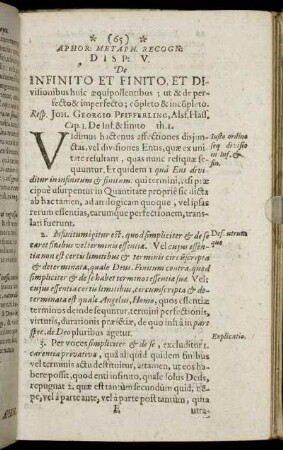 * (65) *
APHOR: METAPH. RECOGN:
DISP: V.
De
INFINITO ET FINITO, ET DI-
visionibus huic æquipollentibus; ut & de per-
fecto & imperfecto; cōpleto & incōpleto.
Resp. JOH. GEORGIO PFIFFERLING, Alsf. Hass.
Cap. 1. De Inf. & finito th. 1.
Vidimus hactenus affectiones disjun-
ctas, vel divisiones Entis, quæ ex unita-
te resultant, quas nunc reliquæ se-
quuntur, Et quidem 1 quâ Ens divi-
ditur in infinitum & finitum: qui termini, etsi præ-
cipuè usurpentur in Quantitate propriè sic dicta
ab hac tamen, ad analogicam quoque, vel ipsas
rerum essentias, earumque perfectionem, trans-
lati fuerunt.
Justa ordina
seq divisio
in Inf. &
fin.
2. Infinitum igitur est, quod simpliciter & de se
caret finibus vel terminis essentiæ. Vel cujus essen-
tia non est certis limitibus & terminis circūscripta
& determinata, quale Deus. Finitum contra, quod
simpliciter & de se habet terminos essentiæ suæ. Vel:
cujus essentia certis limitibus, circumscripta & de-
terminata est quale Angelus, Homo, quos essentiæ
terminos deinde sequuntur, termini perfectionis,
virtutis, durationis præsentiæ, de quo infrà in parte
spec. de Deo pluribus agetur.
Def. utrius-
que
3. Per voces simpliciter & de se, excluditur 1.
carentia privativa, quâ aliquid quidem finibus
vel terminis actu destituitur, attamen, ut eos ha-
bere possit, quod enti infinito, quale solus Deus,
repugnat 2. quæ est tantùm secundum quid, nẽ-
pe, vel à parte ante, vel à parte post tantùm, quia
Explicatio.
E
utra-